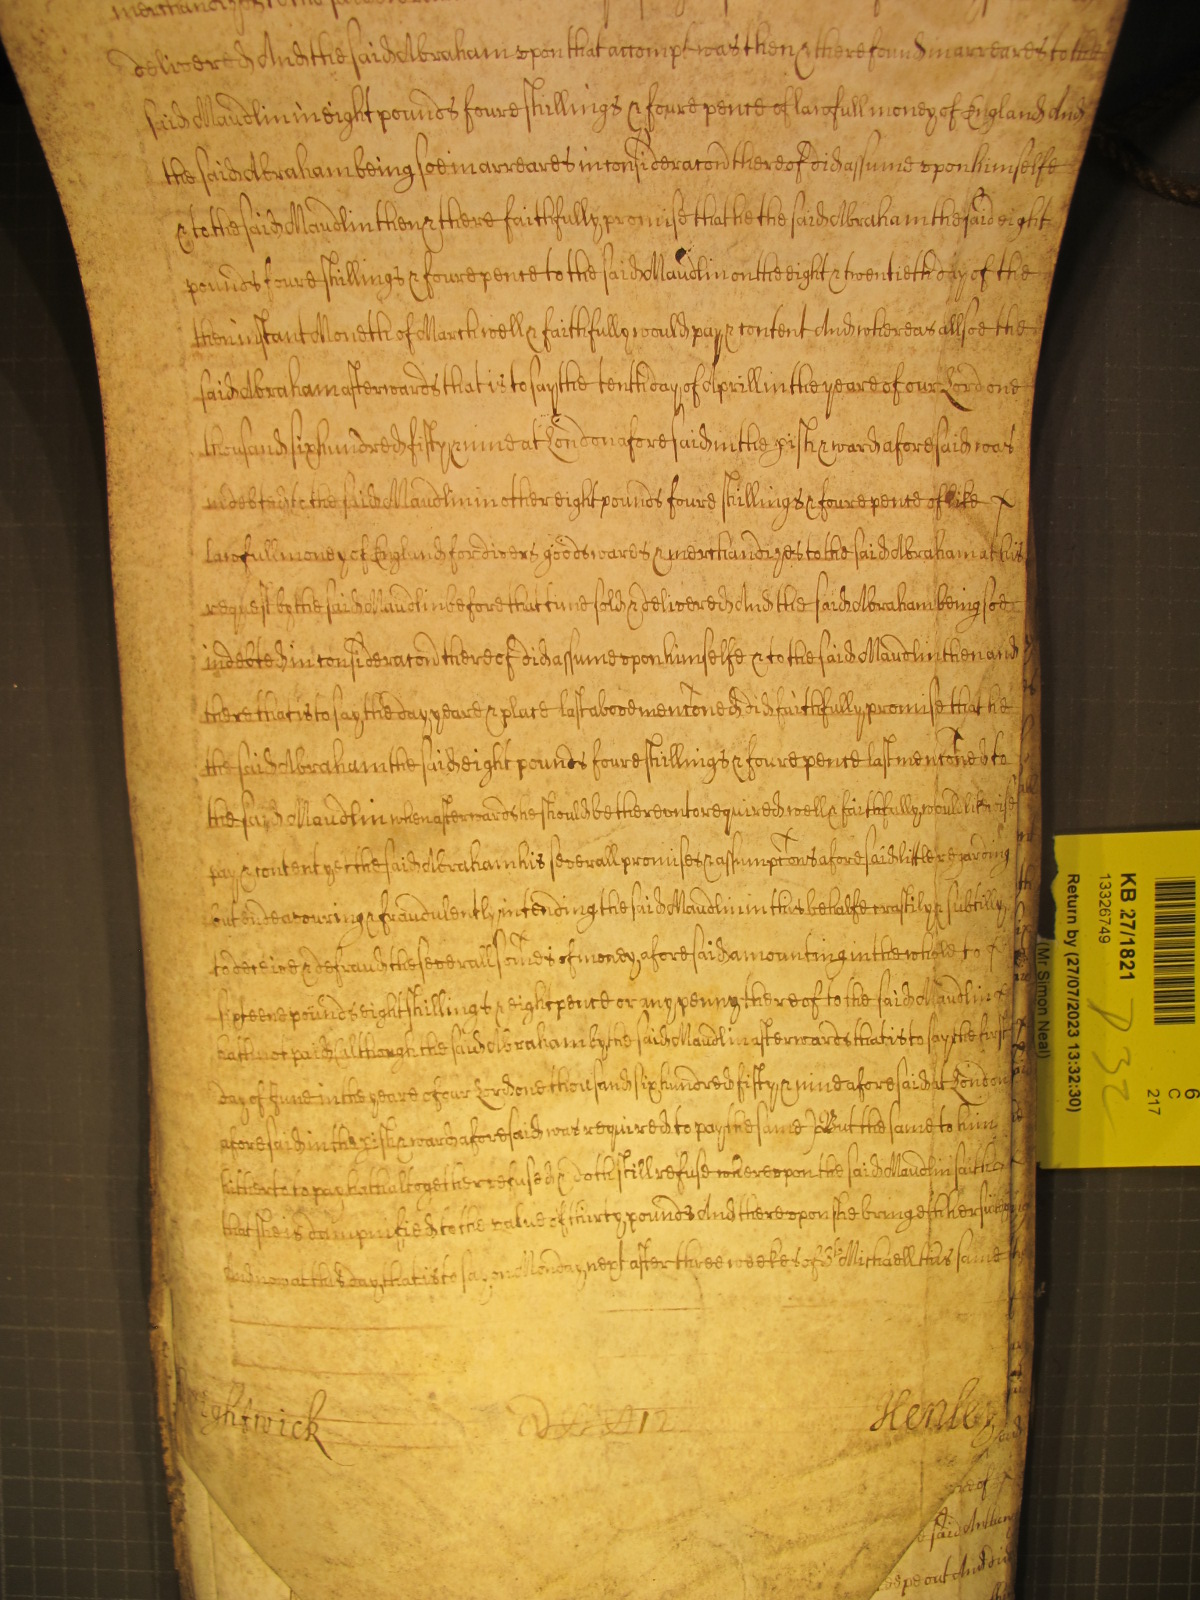 delivered And the said Abraham upon that accompt was then & there found in arreares to the
said Maudlin in eight pounds foure shillings & foure pence of lawfull money of England And
the said Abraham being soe in arreares in consideracon thereof did assume upon himselfe
& to the said Maudlin then & there faithfully promise that he the said Abraham the said eight
pounds foure shillings & foure pence to the said Maudlin on the eight & twentieth day of the
then instant Moneth of March well & faithfully would pay & content And whereas allsoe the
said Abraham afterwards that is to say the tenth day of Aprill in the yeare of our Lord one
thousand six hundred fifty & nine at London aforesaid in the pish & ward aforesaid was
indebted to the said Maudlin in other eight pounds foure shillings & foure pence of like
lawfull money of England for divers goods wares & merchandizes to the said Abraham at his
request by the said Maudlin before that time sold & delivered And the said Abraham being soe
indebted in consideracon thereof did assume upon himselfe & to the said Maudlin then and
there that is to say the day yeare & place last above menconed did faithfully promise that he
the said Abraham the said eight pounds foure shillings & foure pence last menconed to
the said Maudlin when afterwards he should be thereunto required well & faithfully would likewise
pay & content yet the said Abraham his severall promises & assumpcons aforesaid little regarding
but endeavouring & fraudulently intending the said Maudlin in this behalfe craftily & subtilly
to deceive & defraud the severall somes of money aforesaid amounting in the whole to
sixteene pounds eight shillings & eight pence or any penny thereof to the said Maudlin
hath not paid although the said Abraham by the said Maudlin afterwards that is to say the first
day of June in the yeare of our Lord one thousand six hundred fifty & nine aforesaid at London
aforesaid in the pish & ward aforesaid was required to pay the same But the same to him
hitherto to pay hath altogether refused & doth still refuse whereupon the said Maudlin saith
that she is dampnified to the value of thirty pounds And thereupon she bringeth her suite
And now at this day that is to say on Monday next after three weekes of St Michaell this same
Henley
KB 27/1821
13326749
Return by (27/07/2023 13:32:30)
(Mr Simon Neal)
6
C
217